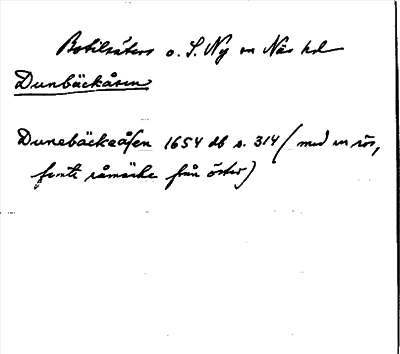 Botilsäters o. S. Ny sn Näs hd
Dunbäckåsen
Dunebäckeåsen 1654 db s. 314 (med en rös,
femte råmärke från öster)